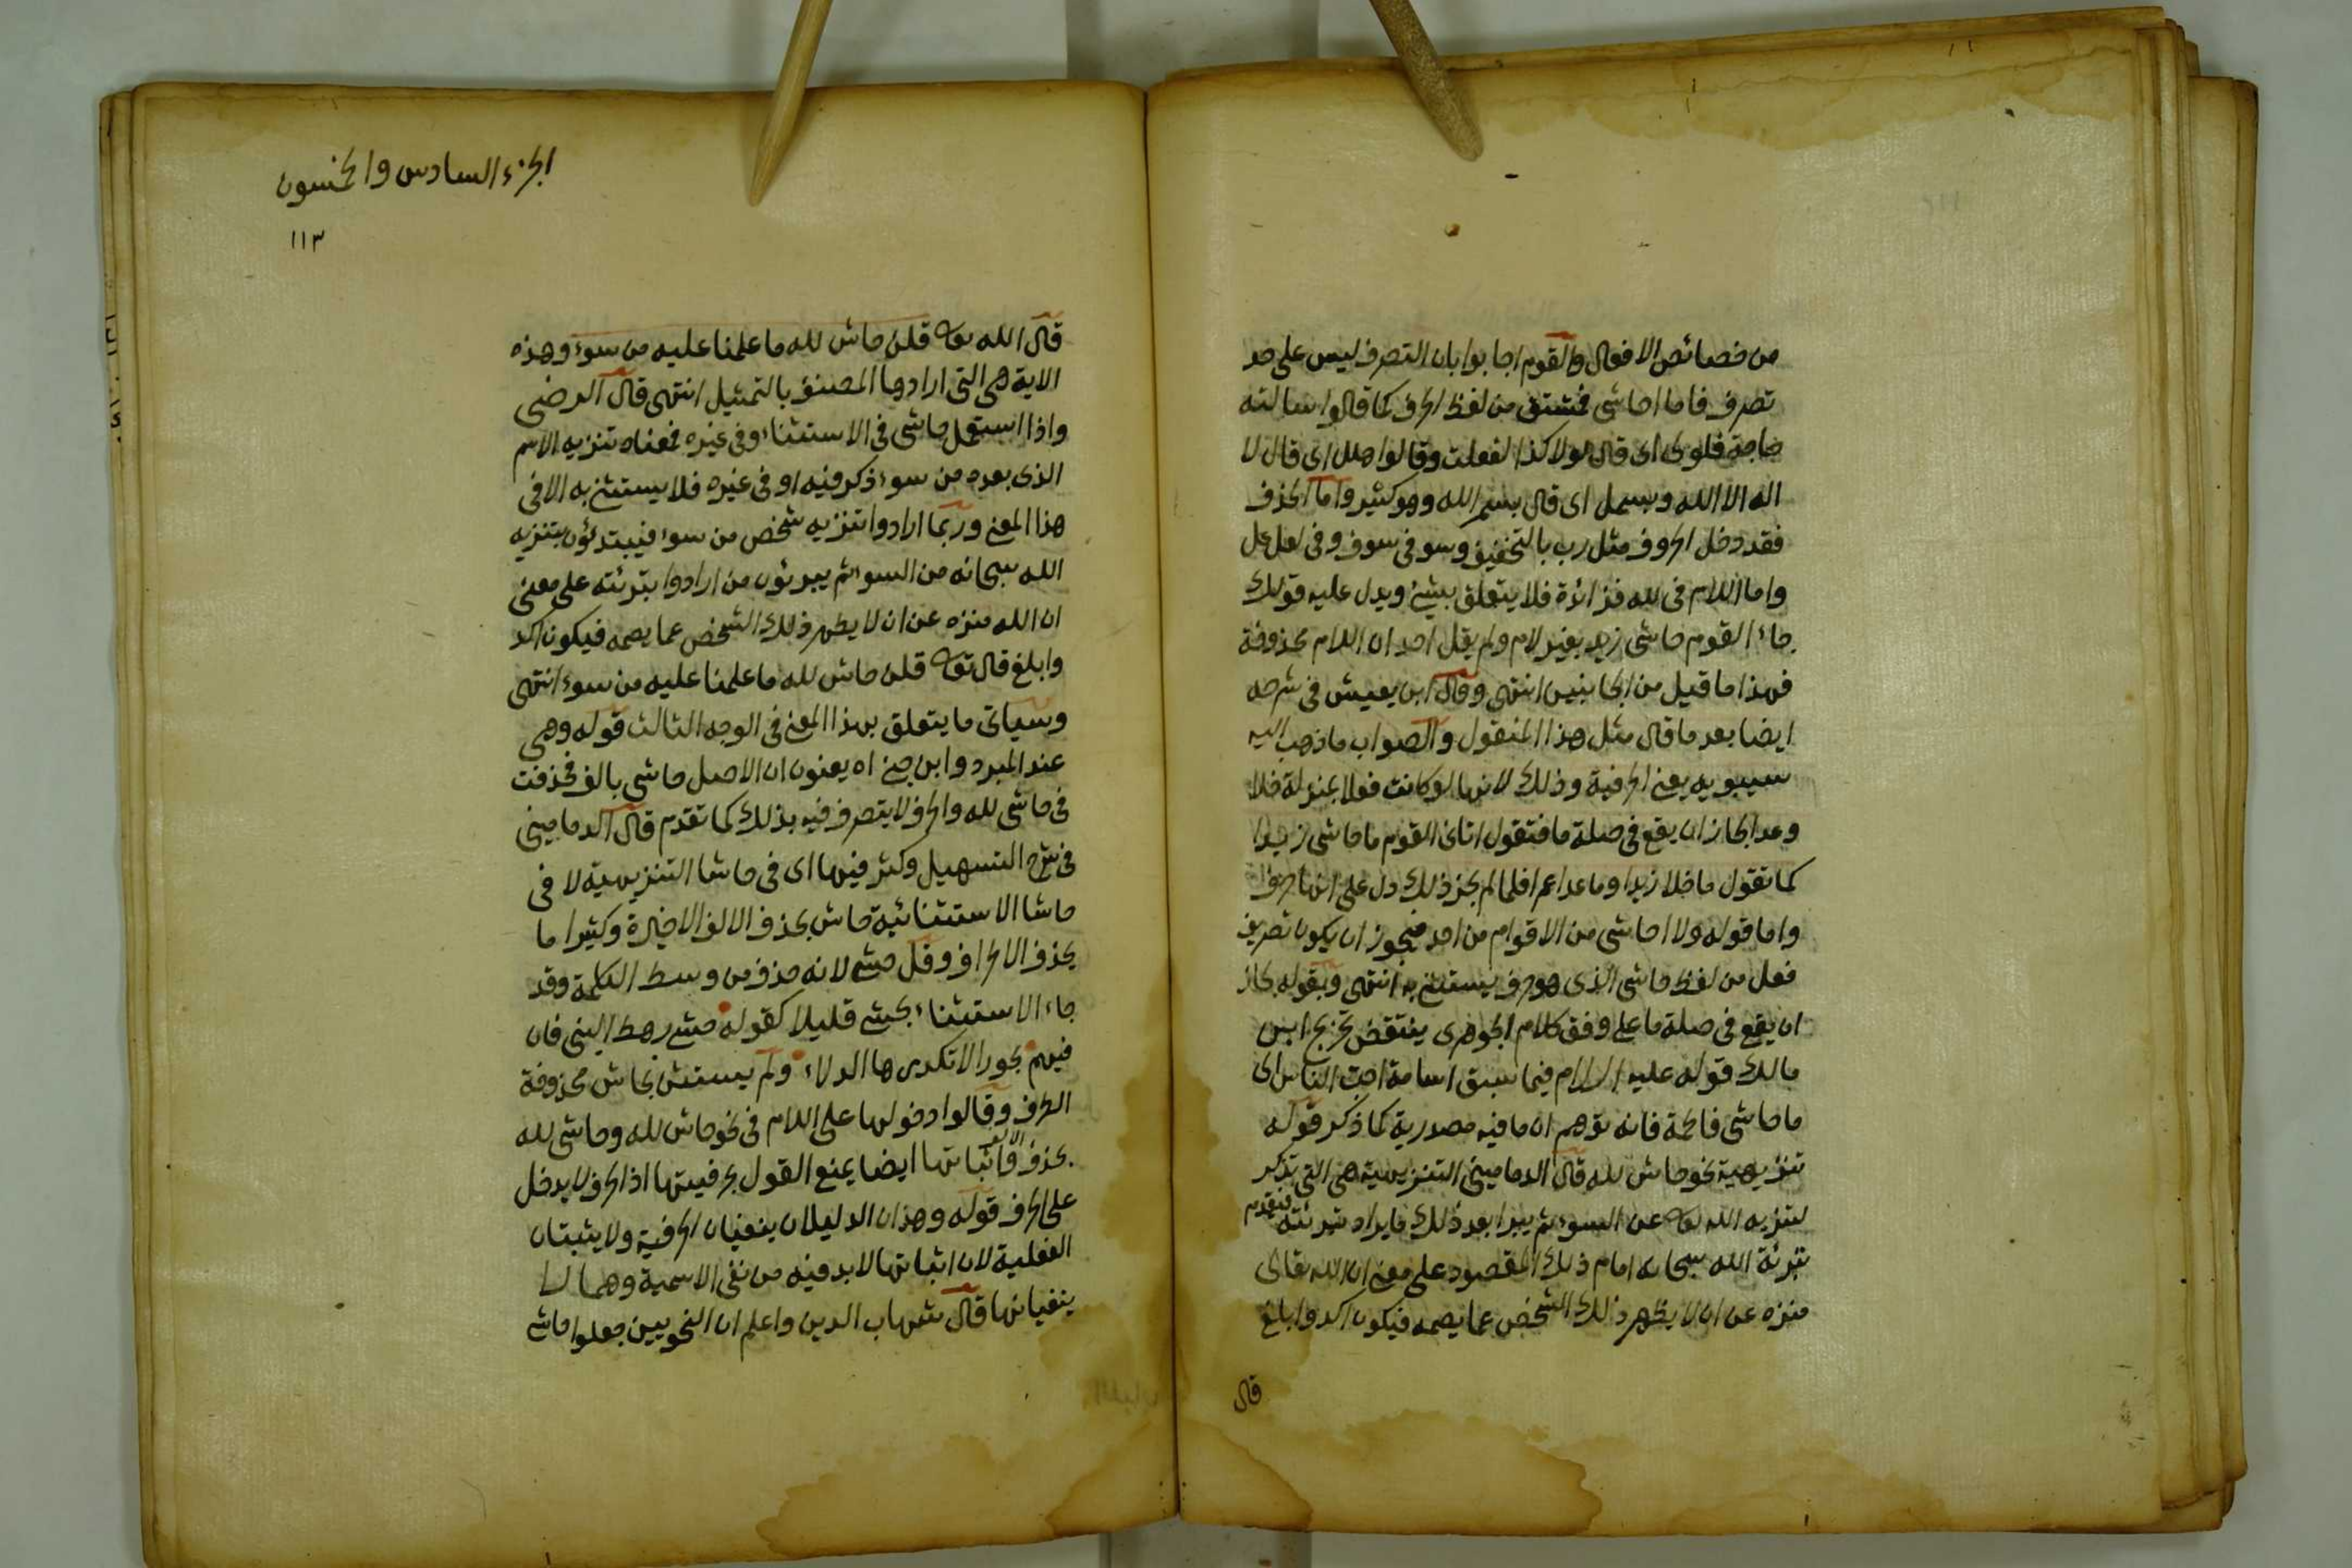 من خصائص الافعال والقوم اجابوا بان التصرف ليس على حد
تصرف فاما احاشى فمشتق من لفظ الحرف كما قالوا سالته
حاجة فلولى اى قال لولا كذا لفعلت وقالوا هلل اى قال لا
اله الا الله وبسمل اى قال بسم الله وهو كثير واما الحذف
فقد دخل الحروف مثل رب بالتخفيف وسو فى سوف وفى لعل عل
واما اللام فى لله فزائدة فلا يتعلق بشئ ويدل عليه قولك
جاء القوم حاشى زيد بغير لام ولم يقل احد ان اللام محذوفة
فهذا ما قيل من الجانبين انتهى وقال ابن يعيش فى شرحه
ايضا بعد ما قال مثل هذا المنقول والصواب ما ذهب اليه
سيبويه يعنى الحرفية وذلك لانها لو كانت فعلا بمنزلة خلا
وعدا لجاز ان يقع فى صلة ما فتقول اتانى القوم ما حاشى زيدا
كما تقول ما خلا زيدا وما عدا عمرا فلما لم يجز ذلك دل على انها حرف
واما قوله ولا احاشى من الاقوام من احد فيجوز ان يكون تصريف
فعل من لفظ حاشى الذى هو حرف يستثنى به انتهى وبقوله لجاز
ان يقع فى صلة ما على وفق كلام الجوهرى ينتقض تخريج ابن
مالك قوله عليه السلام فيما سبق اسامة احب الناس الى
ما حاشى فاطمة فانه توهم ان ما فيه مصدرية كما ذكر قوله
تنزيهية نحو حاش لله قال الدمامينى التنزيهية هى التى تذكر
لتنزيه الله تعالى عن السوء ثم يبرا بعد ذلك ما يراد تبرئته فيقدم
تبرئة الله سبحانه امام ذلك المقصود على معنى ان الله تعالى
منزه عن ان لا يظهر ذلك الشخص عما يصمه فيكون اكد وابلغ
قال
الجزء السادس والخمسون
١١٣
قال الله تعالى قلن حاش لله ما علمنا عليه من سوء وهذه
الاية هى التى ارادها المصنف بالتمثيل انتهى قال الرضى
واذا استعمل حاشى فى الاستثناء وفى غيره فمعناه تنزيه الاسم
الذى بعده من سوء ذكر فيه او فى غيره فلا يستثنى به الا فى
هذا المعنى وربما ارادوا تنزيه شخص من سوء فيبتدئون بتنزيه
الله سبحانه من السوء ثم يبرئون من ارادوا تبرئته على معنى
ان الله منزه عن ان لا يطهر ذلك الشخص عما يصمه فيكون اكد
وابلغ قال تعالى قلن حاش لله ما علمنا عليه من سوء انتهى
وسياتى ما يتعلق بهذا المعنى فى الوجه الثالث قوله وهى
عند المبرد وابن جنى اه يعنون ان الاصل حاشى بالف فحذفت
فى حاشى لله والحرف لا يتصرف فيه بذلك كما تقدم قال الدمامينى
فى شرح التسهيل وكثر فيها اى فى حاشا التنزيهية لا فى
حاشا الاستثنائية حاش بحذف الالف الاخيرة وكثيرا ما
يحذف الاطراف وقل حشى لانه حذف من وسط الكلمة وقد
جاء الاستثناء بحشى قليلا كقوله حشى رهط النبى فان
فيهم بحورا لا تكدرها الدلاء ولم يستثن بحاش محذوفة
الطرف وقالوا دخولها على اللام فى نحو حاش لله وحاشى لله
بحذف الالف واثباتها ايضا يمنع القول بحرفيتها اذ الحرف لا يدخل
على الحرف قوله وهذان الدليلان ينفيان الحرفية ولا يثبتان
الفعلية لان اثباتها لابد فيه من نفى الاسمية وهما لا
ينفيانها قال شهاب الدين واعلم ان النحويين جعلوا حاشى